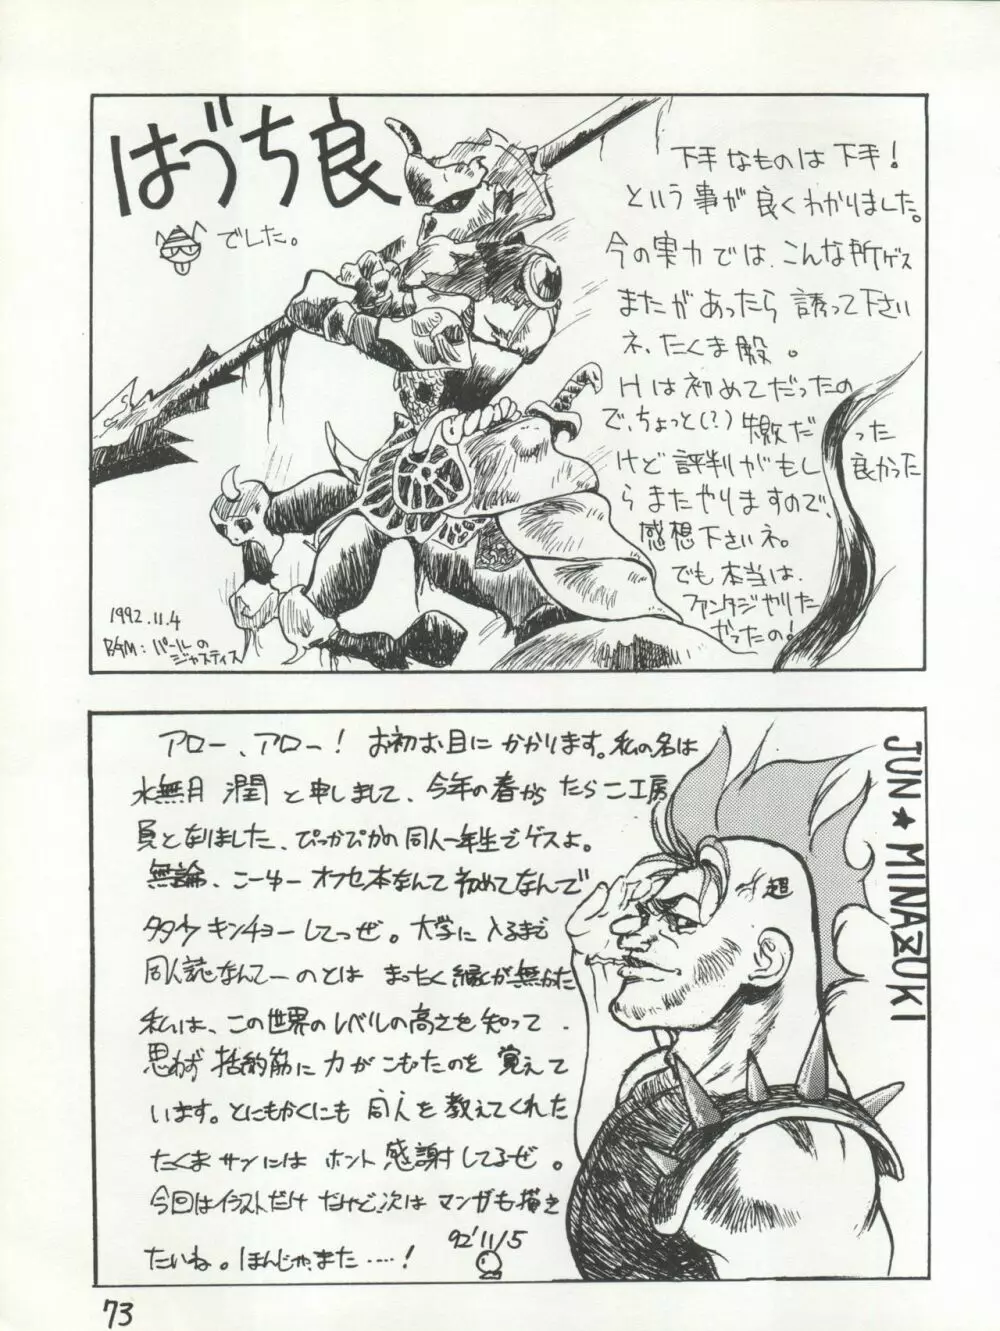 はづち良
でした。
下手なものは下手!
という事が良くわかりました。
今の実力では、こんな所ゲス
またがあったら誘って下さい
ネ、たくま殿。
Hは初めてだったの
で、ちょっと(?)失敗だった
けど評判がもし良かった
らまたやりますので、
感想下さいネ。
でも本当は、
ファンタジやりた
かったの!
1992.11.4
BGM:パールの
ジャスティス
アロー、アロー! お初お目にかかります。私の名は
水無月 潤 と申しまして、今年の春から たらこ工房
員となりました、ぴっかぴかの同人一年生でゲスよ。
無論、こーゆー オフセ本なんて 初めてなんで
タタタ キンチョーしてっぜ。大学に入るまで
同人誌なんてーのとは まったく縁が無かった
私は、この世界のレベルの高さを知って、
思わず 括約筋に力がこもったのを 覚えて
います。とにもかくにも 同人を 教えてくれた
たくまサンには ホント 感謝してるぜ。
今回はイラストだけ だけど次は マンガも描き
たいね。ほんじゃ、また……!
92'11/5
JUN★MINAZUKI
超
73